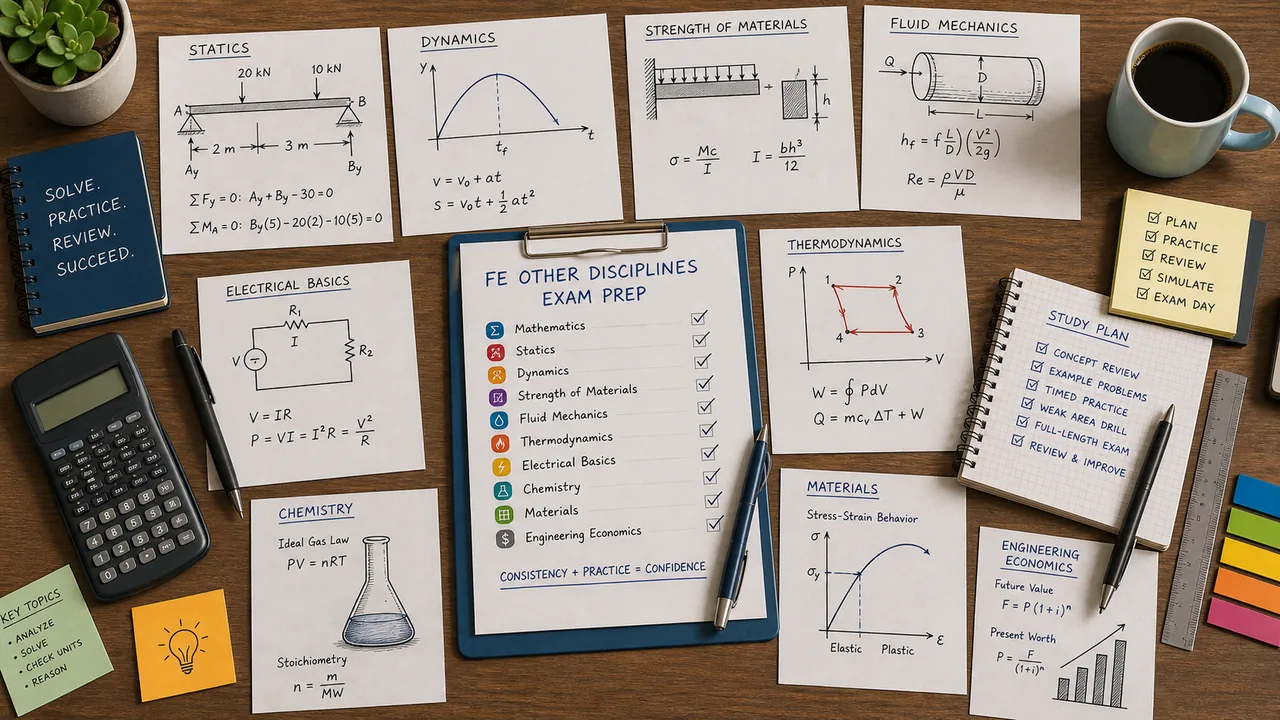 STATICS
20 kN
10 kN
A
B
2 m
3 m
Ay
By
∑Fy = 0: Ay + By – 30 = 0
∑MA = 0: By(5) – 20(2) – 10(5) = 0
DYNAMICS
y
t
tf
v = v₀ + at
s = v₀t + 1/2 at²
STRENGTH OF MATERIALS
h
σ = Mc/I
I = bh³/12
FLUID MECHANICS
Q
D
L
hf = f(L/D)(V²/2g)
Re = ρVD/μ
SOLVE.
PRACTICE.
REVIEW.
SUCCEED.
PLAN
PRACTICE
REVIEW
SIMULATE
EXAM DAY
ELECTRICAL BASICS
R₁
I
V
R₂
V = IR
P = VI = I²R = V²/R
FE OTHER DISCIPLINES
EXAM PREP
Mathematics
Statics
Dynamics
Strength of Materials
Fluid Mechanics
Thermodynamics
Electrical Basics
Chemistry
Materials
$ Engineering Economics
CONSISTENCY + PRACTICE = CONFIDENCE
THERMODYNAMICS
P
1
2
4
3
V
W = ∮ PdV
Q = mcv ΔT + W
STUDY PLAN
CONCEPT REVIEW
EXAMPLE PROBLEMS
TIMED PRACTICE
WEAK AREA DRILL
FULL-LENGTH EXAM
REVIEW & IMPROVE
CHEMISTRY
Ideal Gas Law
PV = nRT
Stoichiometry
n = m/MW
MATERIALS
Stress-Strain Behavior
σ
σy
ε
Elastic Plastic
ENGINEERING
ECONOMICS
Future Value
F = P(1+i)ⁿ
Present Worth
P = F/(1+i)ⁿ
KEY TOPICS
• ANALYZE
• SOLVE
• CHECK UNITS
• REASON